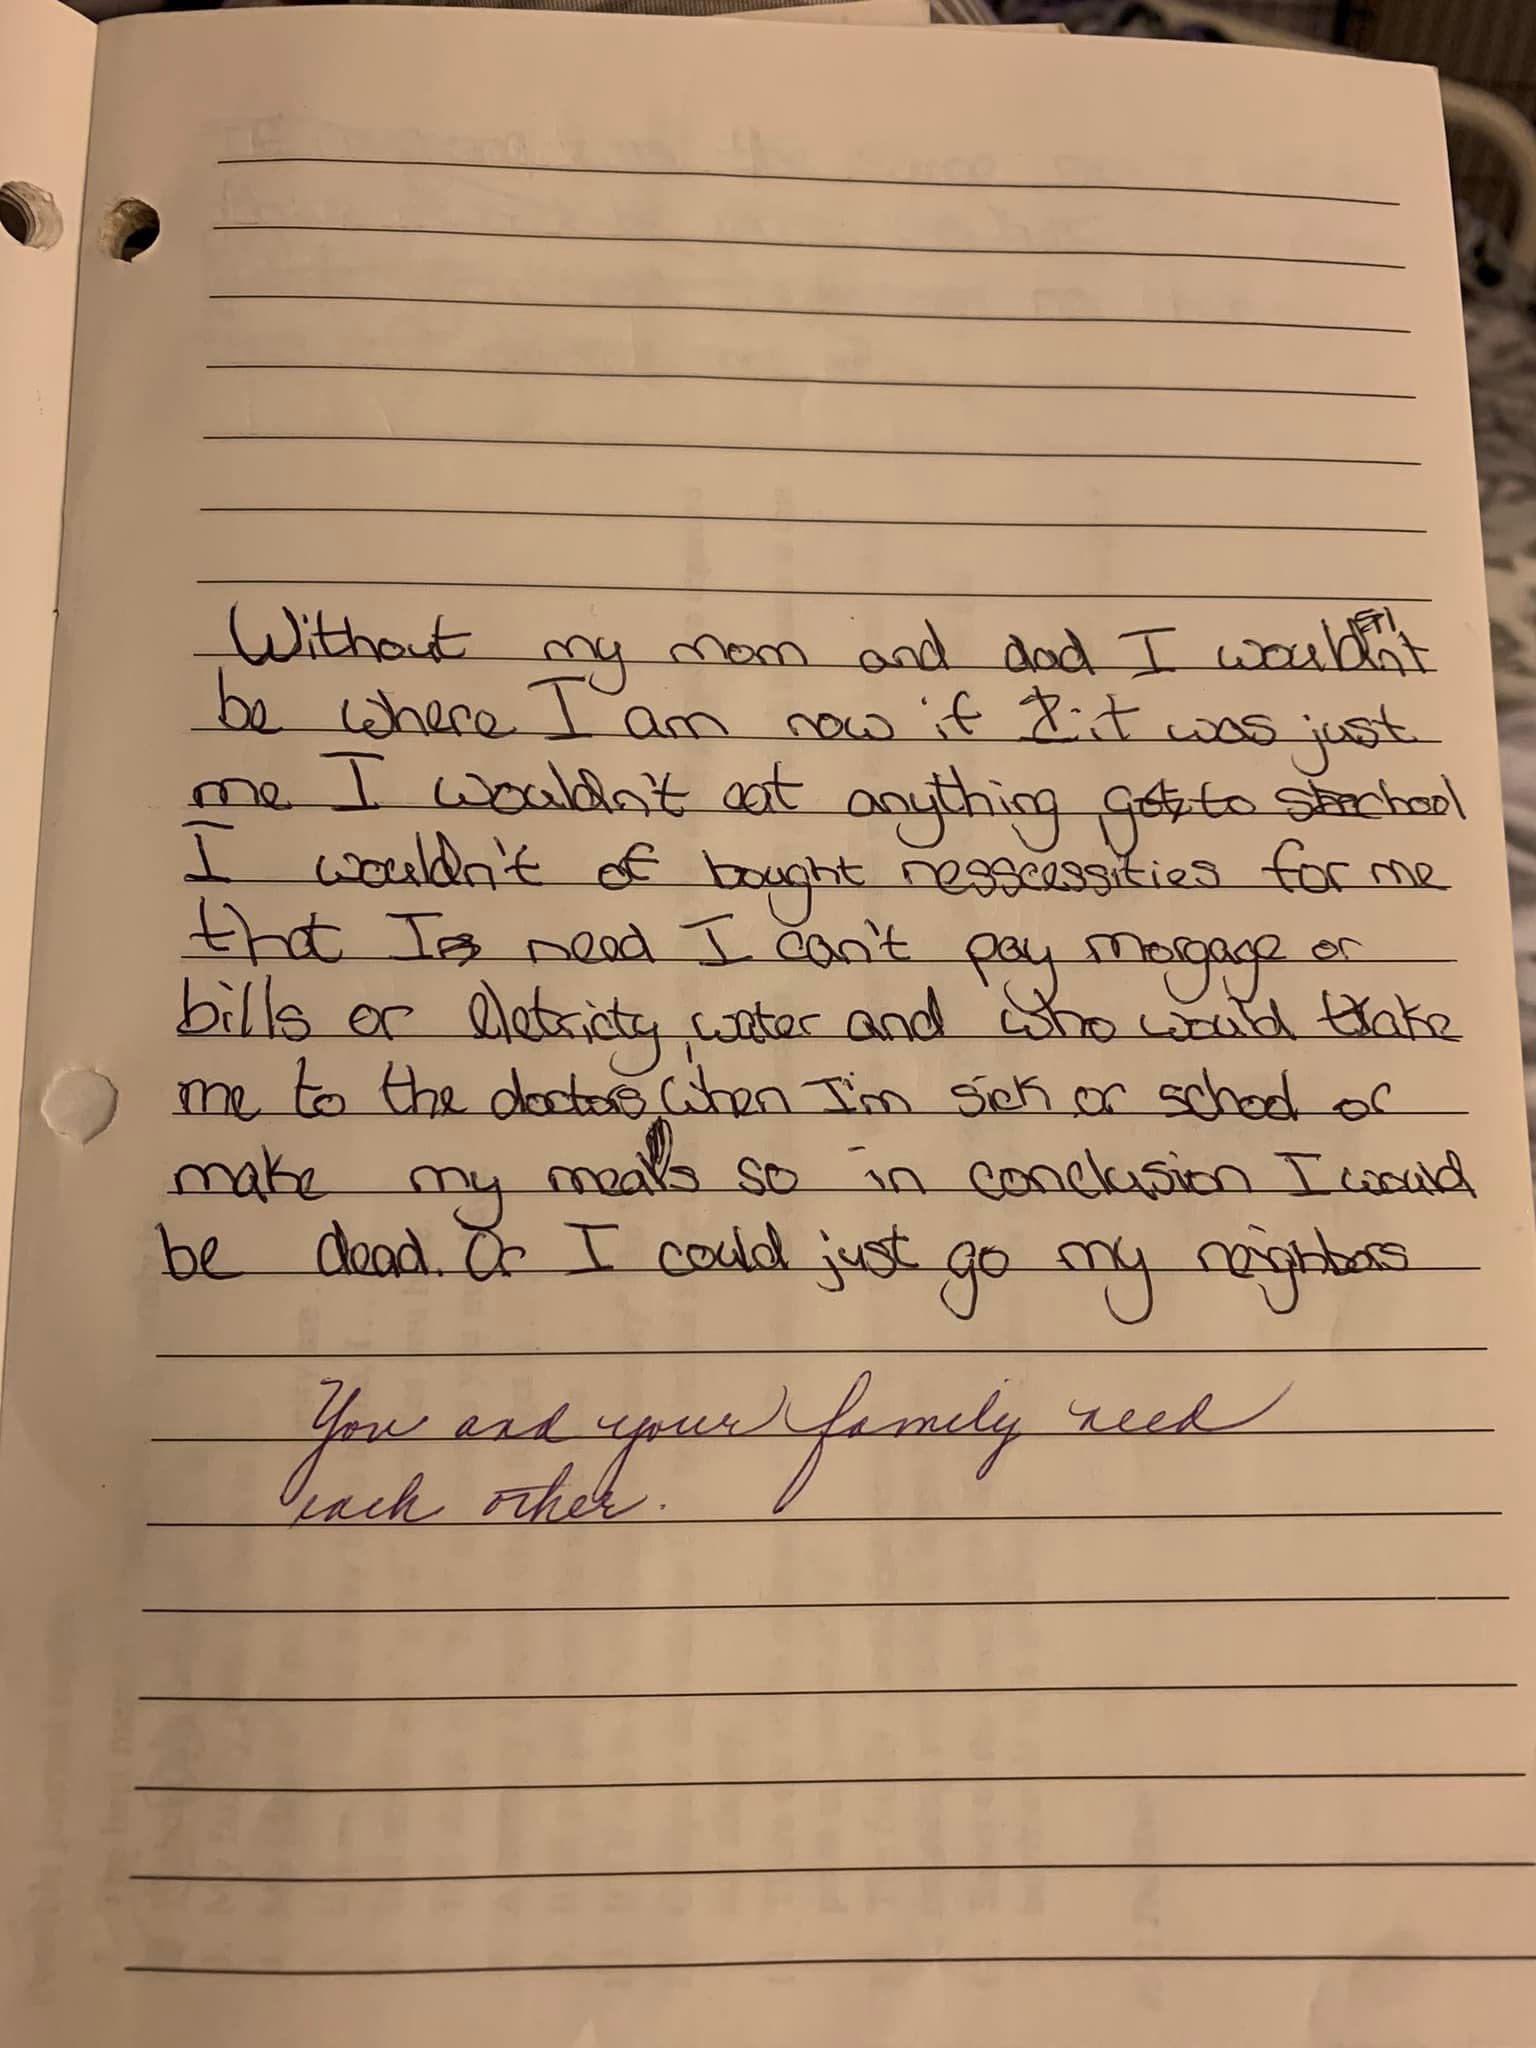 Without my mom and dad I wouldn't
be where I am now if it was just
me I wouldn't eat anything go to school
I wouldn't of bought nesscessities for me
that I need I can't pay morgage or
bills or eletricty, water and who would take
me to the doctors when I'm sick or school or
make my meals so in conclusion I would
be dead. Or I could just go my neighbors
You and your family need
each other.